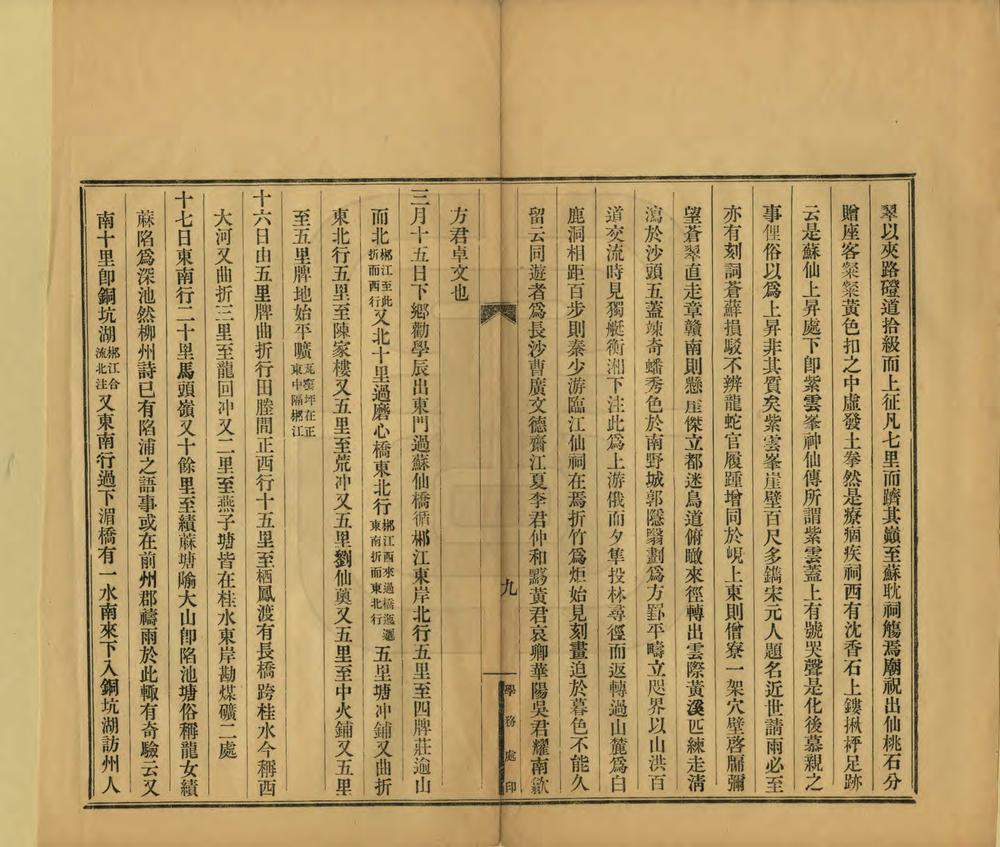 翠以夾路磴道拾級而上征凡七里而躋其巔至蘇耽祠觴焉廟祝出仙桃石分
贈座客粲粲黃色扣之中虛發土拳然是療痼疾祠西有沈香石上鏤楸枰足跡
云是蘇仙上昇處下卽紫雲峯神仙傳所謂紫雲蓋上有號哭聲是化後慕親之
事俚俗以爲上昇非其質矣紫雲峯崖壁百尺多鐫宋元人題名近世請雨必至
亦有刻詞蒼蘚損駁不辨龍蛇官履踵增同於峴上東則僧寮一架穴壁啓牖彌
望蒼翠直走章贛南則懸崖傑立都迷鳥道俯瞰來徑轉出雲際黃溪匹練走淸
瀉於沙頭五蓋竦奇蟠秀色於南野城郭隱翳劃爲方罫平疇立咫界以山洪百
道交流時見獨艇衡湘下注此爲上游俄而夕隼投林尋徑而返轉過山麓爲白
鹿洞相距百步則秦少游臨江仙祠在焉折竹爲炬始見刻畫迫於暮色不能久
留云同遊者爲長沙曹廣文德齋江夏李君仲和黟黃君哀卿華陽吳君耀南歙
方君卓文也
九
學務處印
三月十五日下鄉勸學辰出東門過蘇仙橋循郴江東岸北行五里至四牌莊逾山
而北郴江至此折而西行又北十里過磨心橋東北行郴江西來過橋迤邐東南折而東北行五里塘冲鋪又曲折
東北行五里至陳家樓又五里至荒冲又五里劉仙奠又五里至中火鋪又五里
至五里牌地始平曠瓦窰坪在正東中隔郴江
十六日由五里牌曲折行田塍間正西行十五里至栖鳳渡有長橋跨桂水今稱西
大河又曲折三里至龍回冲又二里至燕子塘皆在桂水東岸勘煤礦二處
十七日東南行二十里馬頭嶺又十餘里至績蔴塘隃大山卽陷池塘俗稱龍女績
蔴陷爲深池然柳州詩已有陷浦之語事或在前州郡禱雨於此輒有奇驗云又
南十里卽銅坑湖郴江合流北注又東南行過下湄橋有一水南來下入銅坑湖訪州人